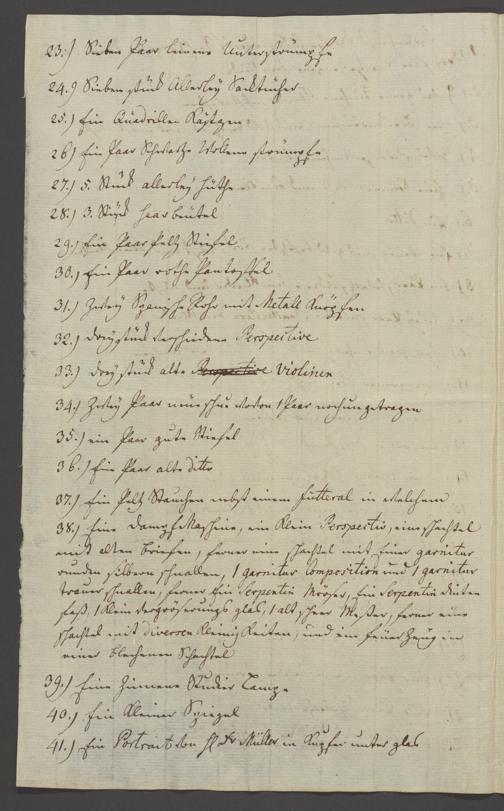 23.) Sieben Paar leinene Unterstrümpfe
24.) Sieben stück Allerley Sacktücher
25.) Ein Quadrillen Kästgen
26.) Ein Paar Schwartze Wollene strümpfe
27.) 5. Stück allerley Hüthe
28.) 3. Stück Haarbeutel
29.) Ein Paar Peltz Stiefel
30.) Ein Paar rothe Pantoffel
31.) Zwey Spanische Rohr mit Metall Knöpfen
32.) drey stück verschiedene Perspective
33.) drey stück alte Perspective Violinen
34.) Zwey Paar neue schu wovon 1 Paar noch ungetragen
35.) ein Paar gute Stiefel
36.) Ein Paar alte ditto
37.) Ein Peltz Stauchen nebst einem Futteral in welchem
38.) Eine Dampf Maschine, ein klein Perspectiv, eine schachtel
mit alten Briefen, ferner eine schachtel mit einer garnitur
runden silbern schnallen, 1 garnitur Composition und 1 garnitur
trauer schnallen, ferner Ein Serpentin Mörser, Ein Serpentin Dinten
faß, 1 klein Vergröserungs glas, 1 alt scheer Messer, ferner eine
schachtel mit diversen Kleinigkeiten, und ein feuer Zeug in
einer blechernen Schachtel
39.) Eine Zinnene Studier Lampe
40.) Ein Kleiner Spiegel
41.) Ein Portrait von H. Dr. Müller in Kupfer unter glas